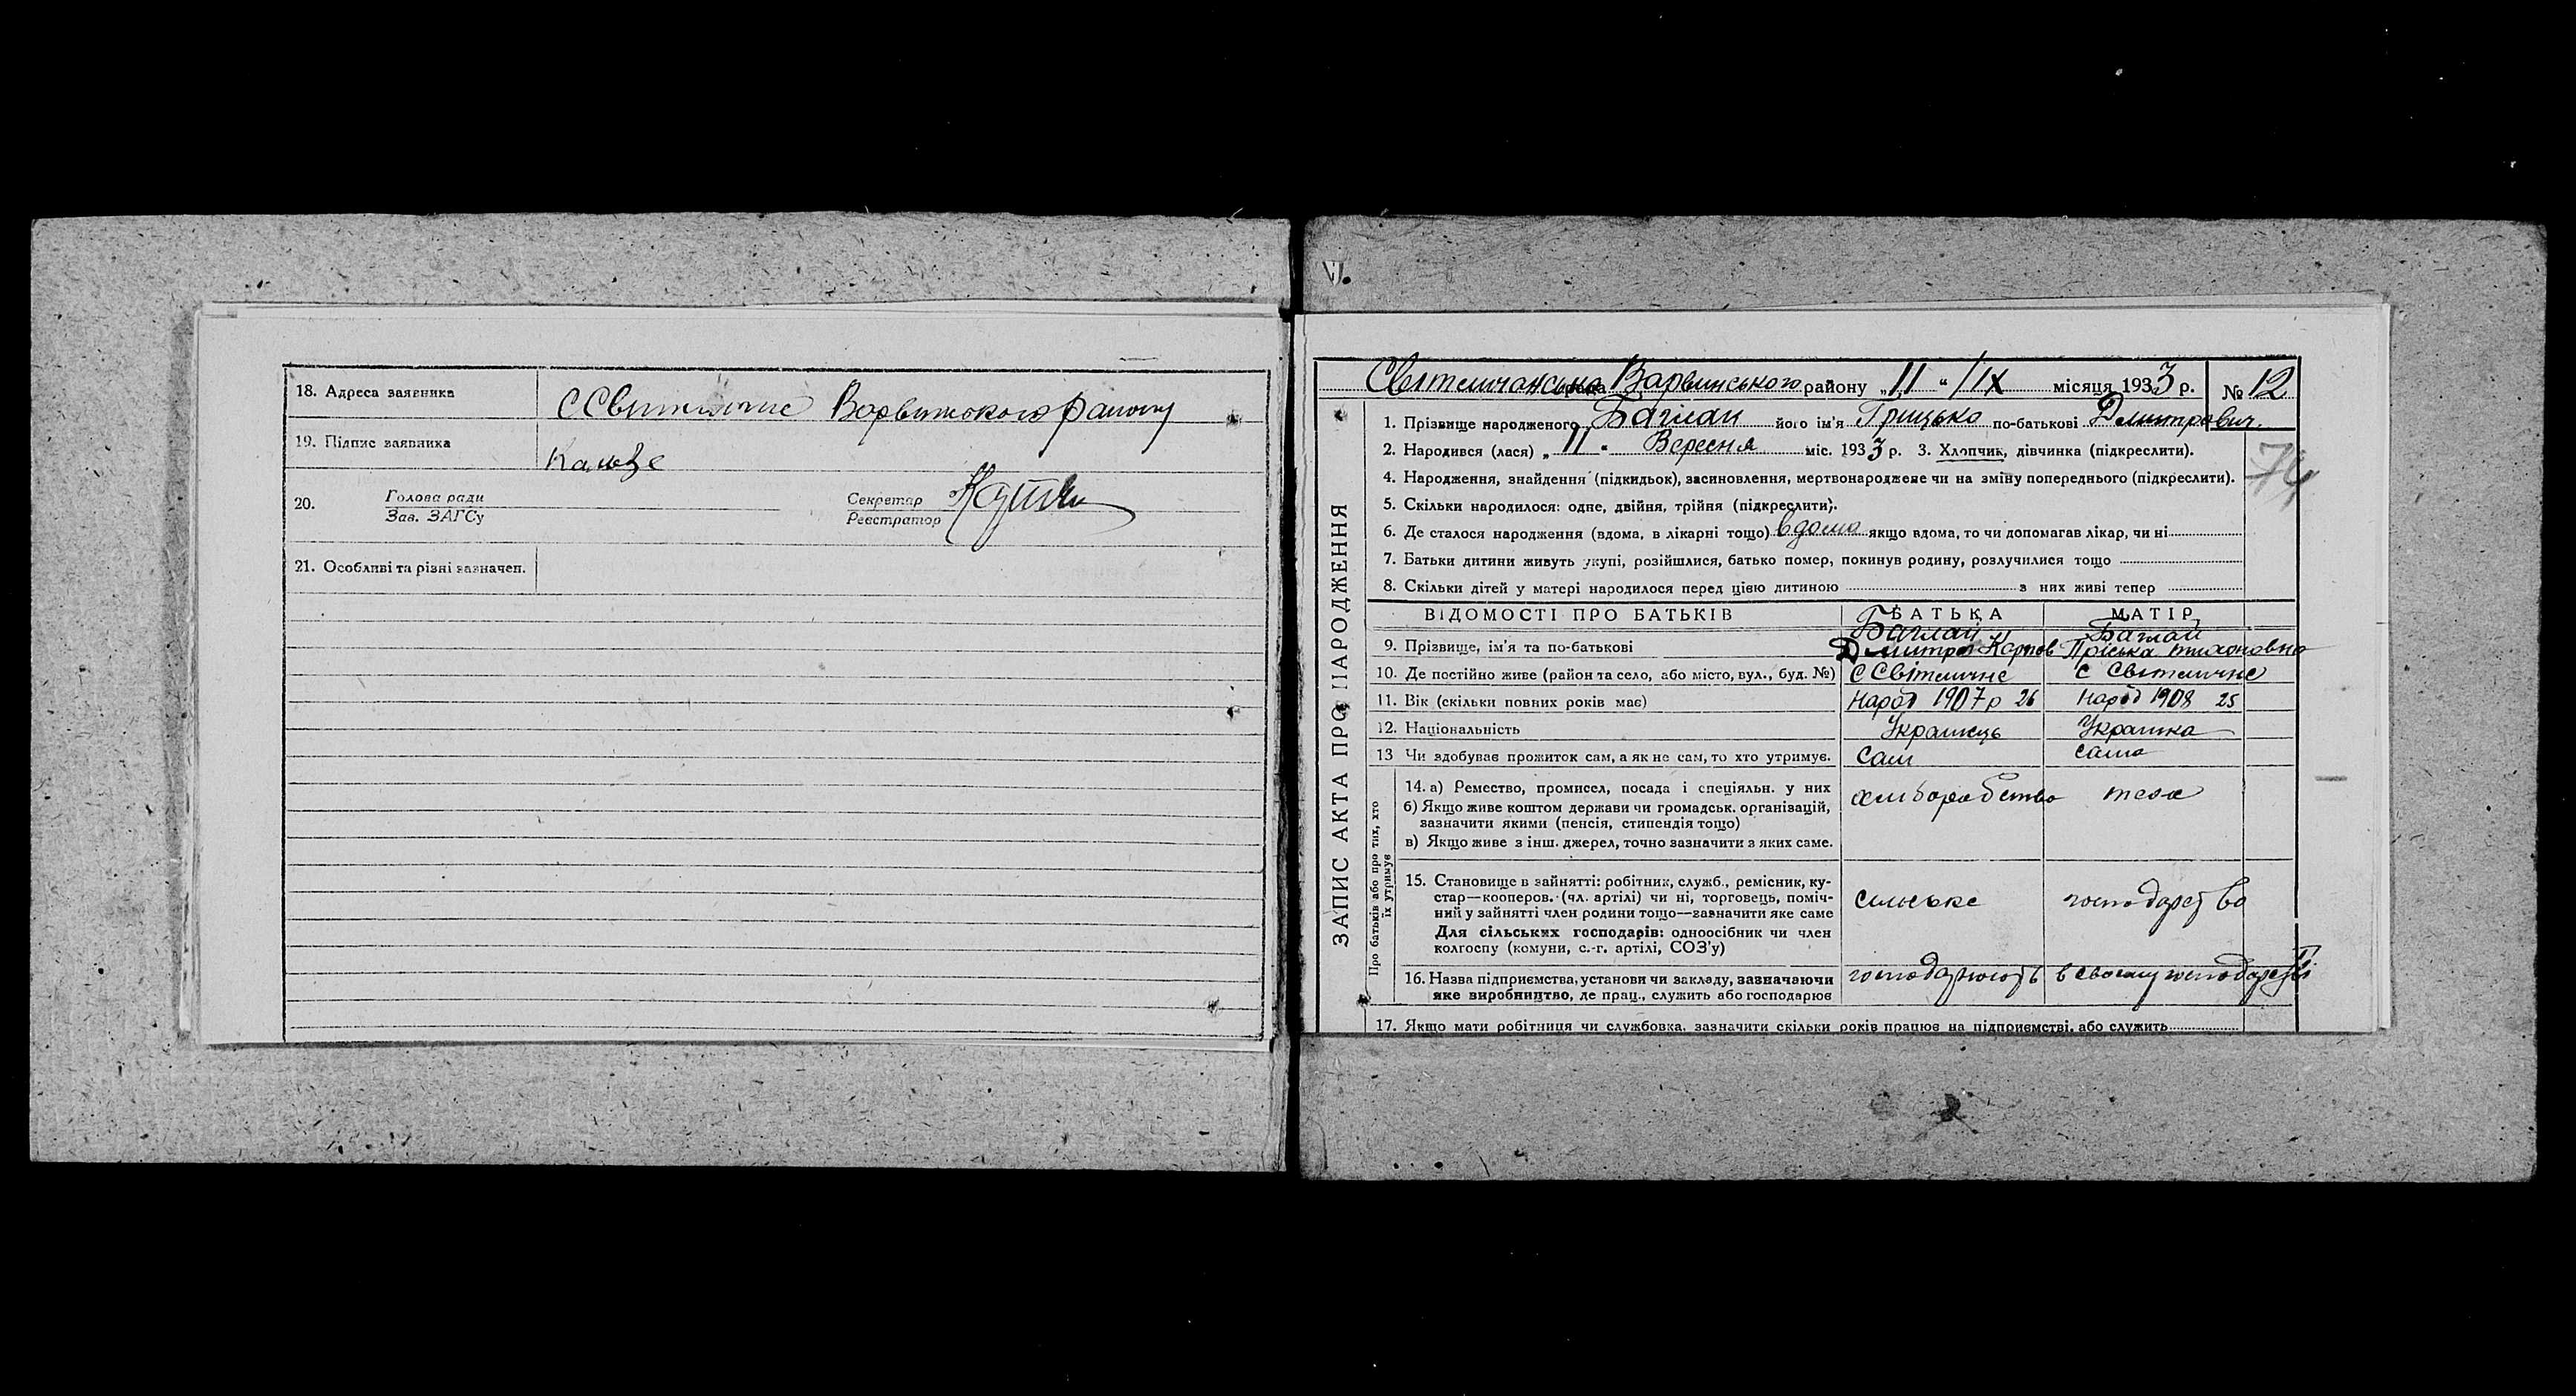 18. Адреса заявника С Світличне Варвинського району
19. Підпис заявника
20. Голова ради Секретар
Зав. ЗАГСу Реєстратор
21. Особливі та різні зазначен.
Світличанська рада Варвинського району „11“ IX місяця 1933 р. № 12
1. Прізвище народженого Баглай його ім'я Грицько по-батькові Дмитрович.
2. Народився (лася) „11“ Вересня міс. 1933 р. 3. Хлопчик, дівчинка (підкреслити).
74
4. Народження, знайдення (підкидьок), засиновлення, мертвонароджене чи на зміну попереднього (підкреслити).
5. Скільки народилося: одне, двійня, трійня (підкреслити).
6. Де сталося народження (вдома, в лікарні тощо) вдома якщо вдома, то чи допомагав лікар, чи ні
7. Батьки дитини живуть укупі, розійшлися, батько помер, покинув родину, розлучилися тощо
8. Скільки дітей у матері народилося перед цією дитиною з них живі тепер
ЗАПИС АКТА ПРО НАРОДЖЕННЯ
ВІДОМОСТІ ПРО БАТЬКІВ БАТЬКА МАТІР
Баглай Баглай
9. Прізвище, ім'я та по-батькові Дмитро Карпов Пріська Тихоновна
10. Де постійно живе (район та село, або місто, вул., буд. №) С Світличне С Світличне
11. Вік (скільки повних років має) народ 1907 р 26 народ 1908 25
12. Національність Українець Українка
13 Чи здобуває прожиток сам, а як не сам, то хто утримує. сам сама
Про батьків або про тих, хто
їх утримує
14. а) Ремество, промисел, посада і спеціяльн. у них хліборобство теж
б) Якщо живе коштом держави чи громадськ. організацій,
зазначити якими (пенсія, стипендія тощо)
в) Якщо живе з інш. джерел, точно зазначити з яких саме.
15. Становище в зайнятті: робітник, служб., ремісник, ку-
стар—кооперов. (чл. артілі) чи ні, торговець, поміч- сільське господарство
ний у зайнятті член родини тощо—зазначити яке саме
Для сільських господарів: одноосібник чи член
колгоспу (комуни, с.-г. артілі, СОЗ'у)
16. Назва підприємства, установи чи закладу, зазначаючи господарюють в своєму господарстві
яке виробництво, де прац., служить або господарює
17. Якщо мати робітниця чи службовка, зазначити скільки років працює на підприємстві, або служить